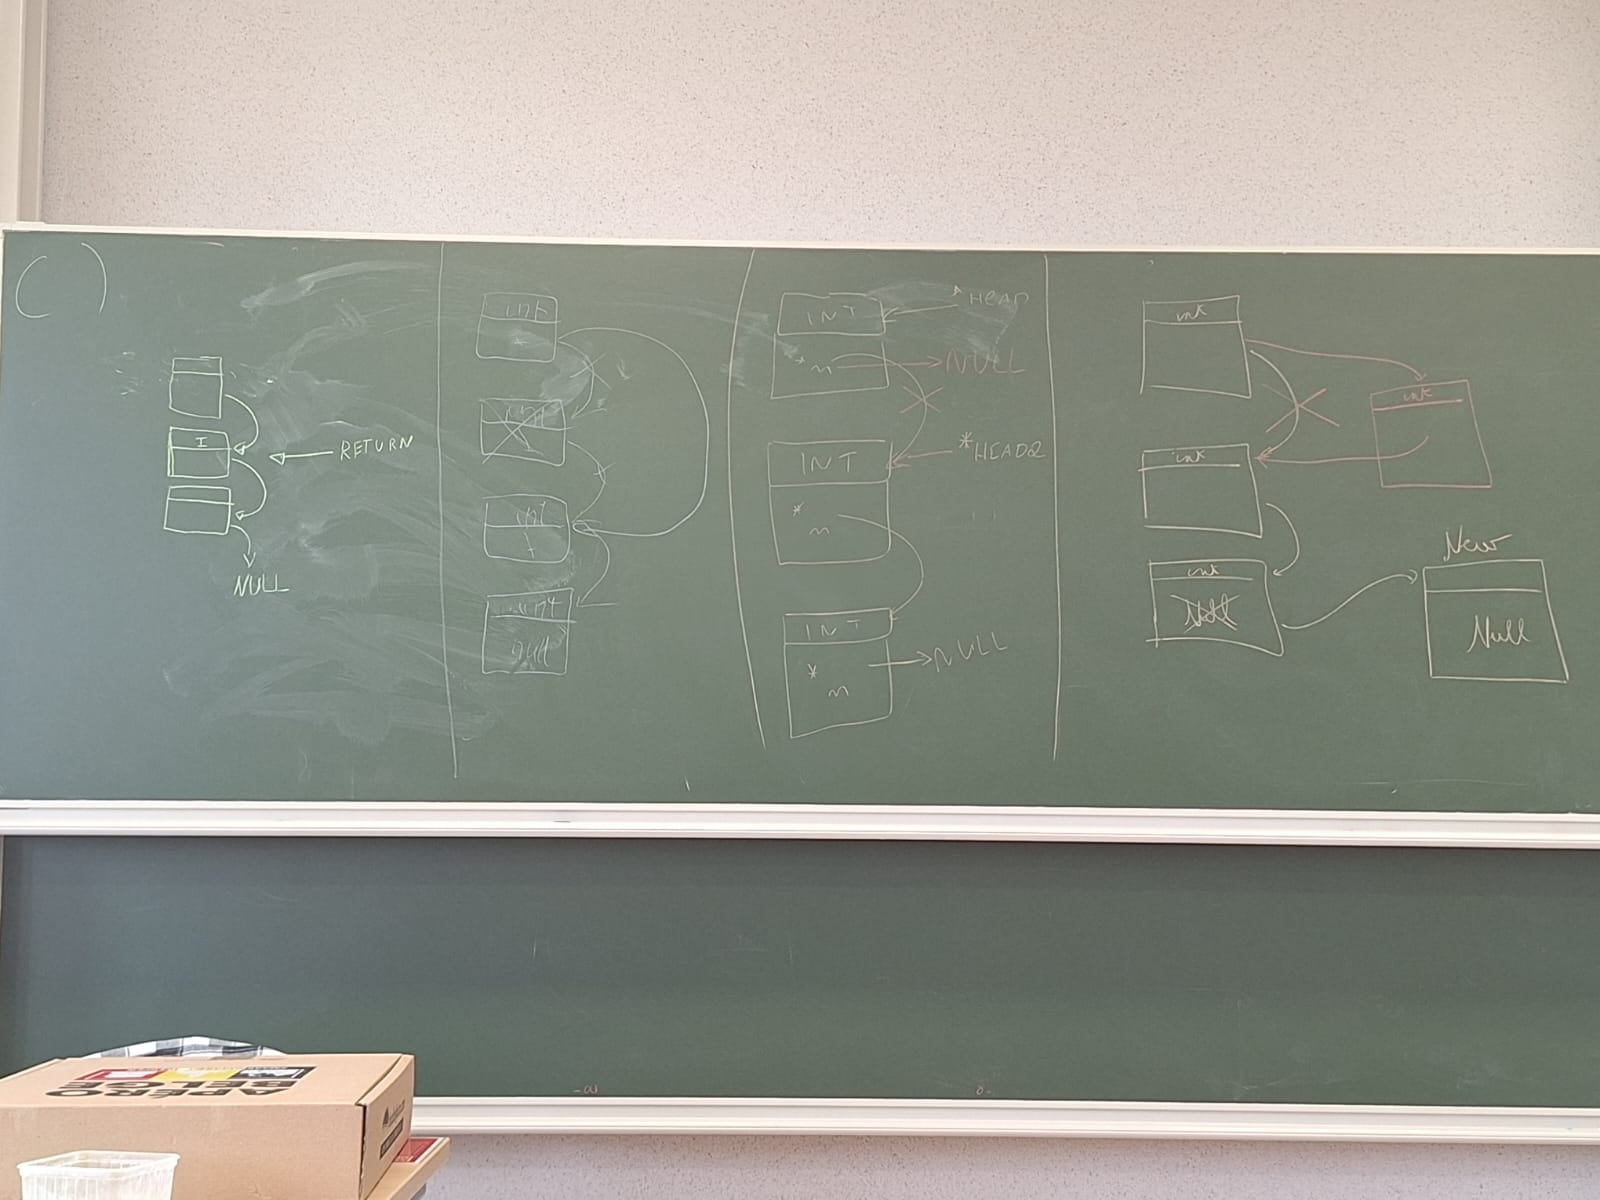 C)
I
RETURN
NULL
int
int
int
null
INT
* HEAD
* n
NULL
INT
* HEAD2
*
n
INT
NULL
*
n
int
int
int
int
Null
New
Null
APÉRO
BELGE